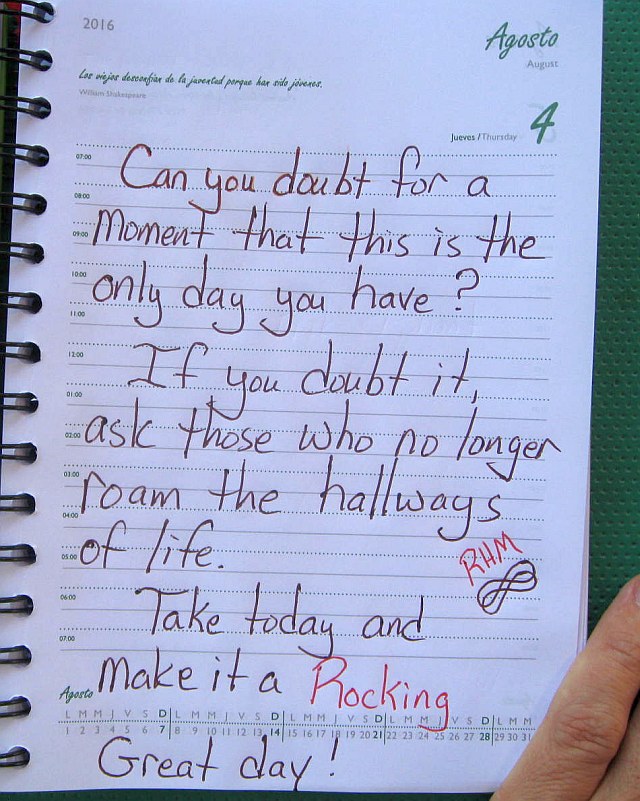 2016
Agosto
August
Los viejos desconfían de la juventud porque han sido jóvenes.
William Shakespeare
Jueves / Thursday 4
07:00
Can you doubt for a
08:00
moment that this is the
09:00
10:00
only day you have?
11:00
12:00
If you doubt it,
01:00
ask those who no longer
02:00
03:00
roam the hallways
04:00
of life.
05:00
RHM
06:00
Take today and
07:00
make it a Rocking
Agosto
L M M J V S D L M M J V S D L M M J V S D L M M J V S D L M M
1 2 3 4 5 6 7 8 9 10 11 12 13 14 15 16 17 18 19 20 21 22 23 24 25 26 27 28 29 30 31
Great day!